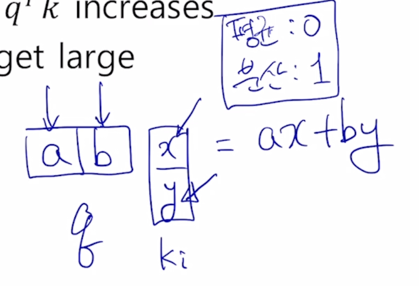 qᵀk increases
get large
평균: 0
분산: 1
a b x = ax+by
y
q
ki